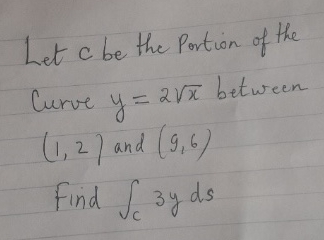 Let c be the Portion of the
Curve y = 2√x between
(1, 2) and (9, 6)
Find ∫_C 3y ds